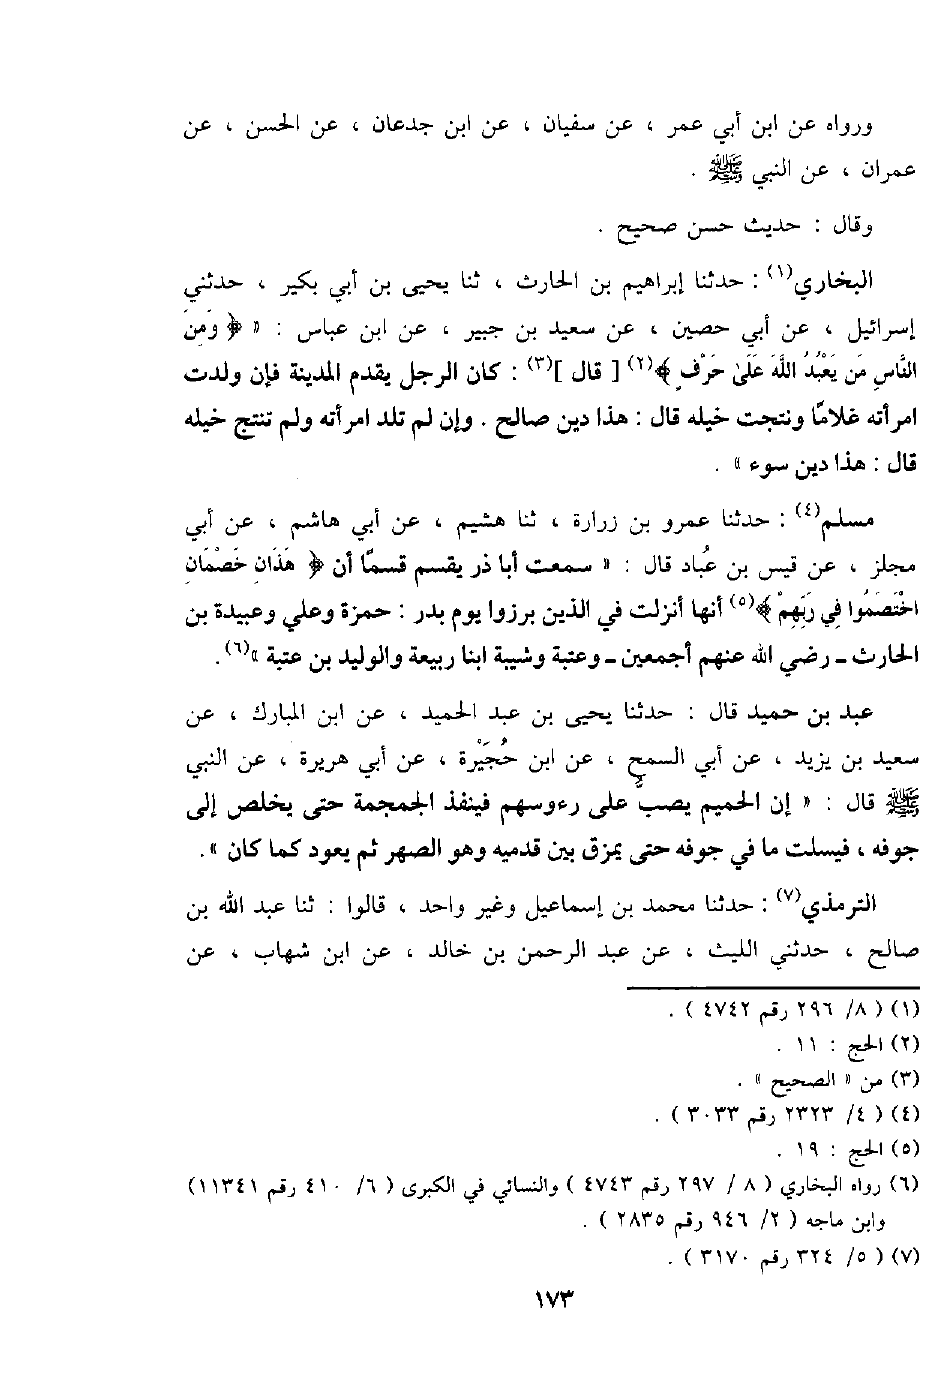 ورواه عن ابن أبي عمر ، عن سفيان ، عن ابن جدعان ، عن الحسن ، عن
عمران ، عن النبي ﷺ .
وقال : حديث حسن صحيح .
البخاري(١) : حدثنا إبراهيم بن الحارث ، ثنا يحيى بن أبي بكير ، حدثني
إسرائيل ، عن أبي حصين ، عن سعيد بن جبير ، عن ابن عباس : « ﴿ وَمِنَ
النَّاسِ مَن يَعْبُدُ اللَّهَ عَلَىٰ حَرْفٍ ﴾(٢) [ قال ](٣) : كان الرجل يقدم المدينة فإن ولدت
امرأته غلامًا ونتجت خيله قال : هذا دين صالح . وإن لم تلد امرأته ولم تنتج خيله
قال : هذا دين سوء » .
مسلم(٤) : حدثنا عمرو بن زرارة ، ثنا هشيم ، عن أبي هاشم ، عن أبي
مجلز ، عن قيس بن عُباد قال : « سمعت أبا ذر يقسم قسمًا أن ﴿ هَذَانِ خَصْمَانِ
اخْتَصَمُوا فِي رَبِّهِمْ ﴾(٥) أنها أنزلت في الذين برزوا يوم بدر : حمزة وعلي وعبيدة بن
الحارث ـ رضي الله عنهم أجمعين ـ وعتبة وشيبة ابنا ربيعة والوليد بن عتبة »(٦).
عبد بن حميد قال : حدثنا يحيى بن عبد الحميد ، عن ابن المبارك ، عن
سعيد بن يزيد ، عن أبي السمح ، عن ابن حُجَيْرة ، عن أبي هريرة ، عن النبي
ﷺ قال : « إن الحميم يصب على رءوسهم فينفذ الجمجمة حتى يخلص إلى
جوفه ، فيسلت ما في جوفه حتى يمزق بين قدميه وهو الصهر ثم يعود كما كان ».
الترمذي(٧) : حدثنا محمد بن إسماعيل وغير واحد ، قالوا : ثنا عبد الله بن
صالح ، حدثني الليث ، عن عبد الرحمن بن خالد ، عن ابن شهاب ، عن
(١) ( ٨/ ٢٩٦ رقم ٤٧٤٢ ) .
(٢) الحج : ١١ .
(٣) من « الصحيح » .
(٤) ( ٤/ ٢٣٢٣ رقم ٣٠٣٣ ) .
(٥) الحج : ١٩ .
(٦) رواه البخاري ( ٨ / ٢٩٧ رقم ٤٧٤٣ ) والنسائي في الكبرى ( ٦/ ٤١٠ رقم ١١٣٤١)
وابن ماجه ( ٢/ ٩٤٦ رقم ٢٨٣٥ ) .
(٧) ( ٥/ ٣٢٤ رقم ٣١٧٠ ) .
١٧٣